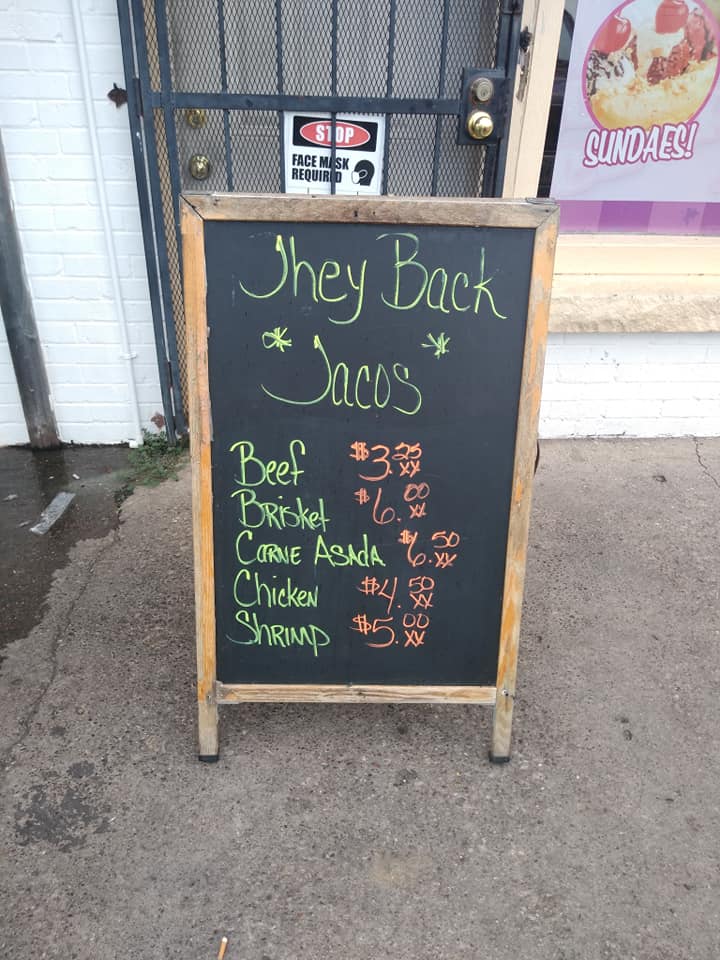 STOP
FACE MASK
REQUIRED
SUNDAES!
They Back
*Tacos*
Beef $3.25/xx
Brisket $6.00/xx
Carne Asada $6.50/xx
Chicken $4.50/xx
Shrimp $5.00/xx